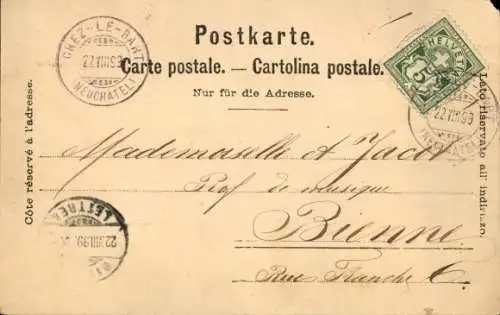 Postkarte.
Carte postale. — Cartolina postale.
Nur für die Adresse.
CHEZ-LE-BART
22.VIII.99
(NEUCHATEL)
HELVETIA
5
22.VIII.99
(NEUCHATEL)
Côte réservé à l'adresse.
Lato riservato all' indirizzo.
Mademoiselle A Jacot
Prof de musique
Bienne
Rue Franche 6
LETTRE
22.VIII.99.